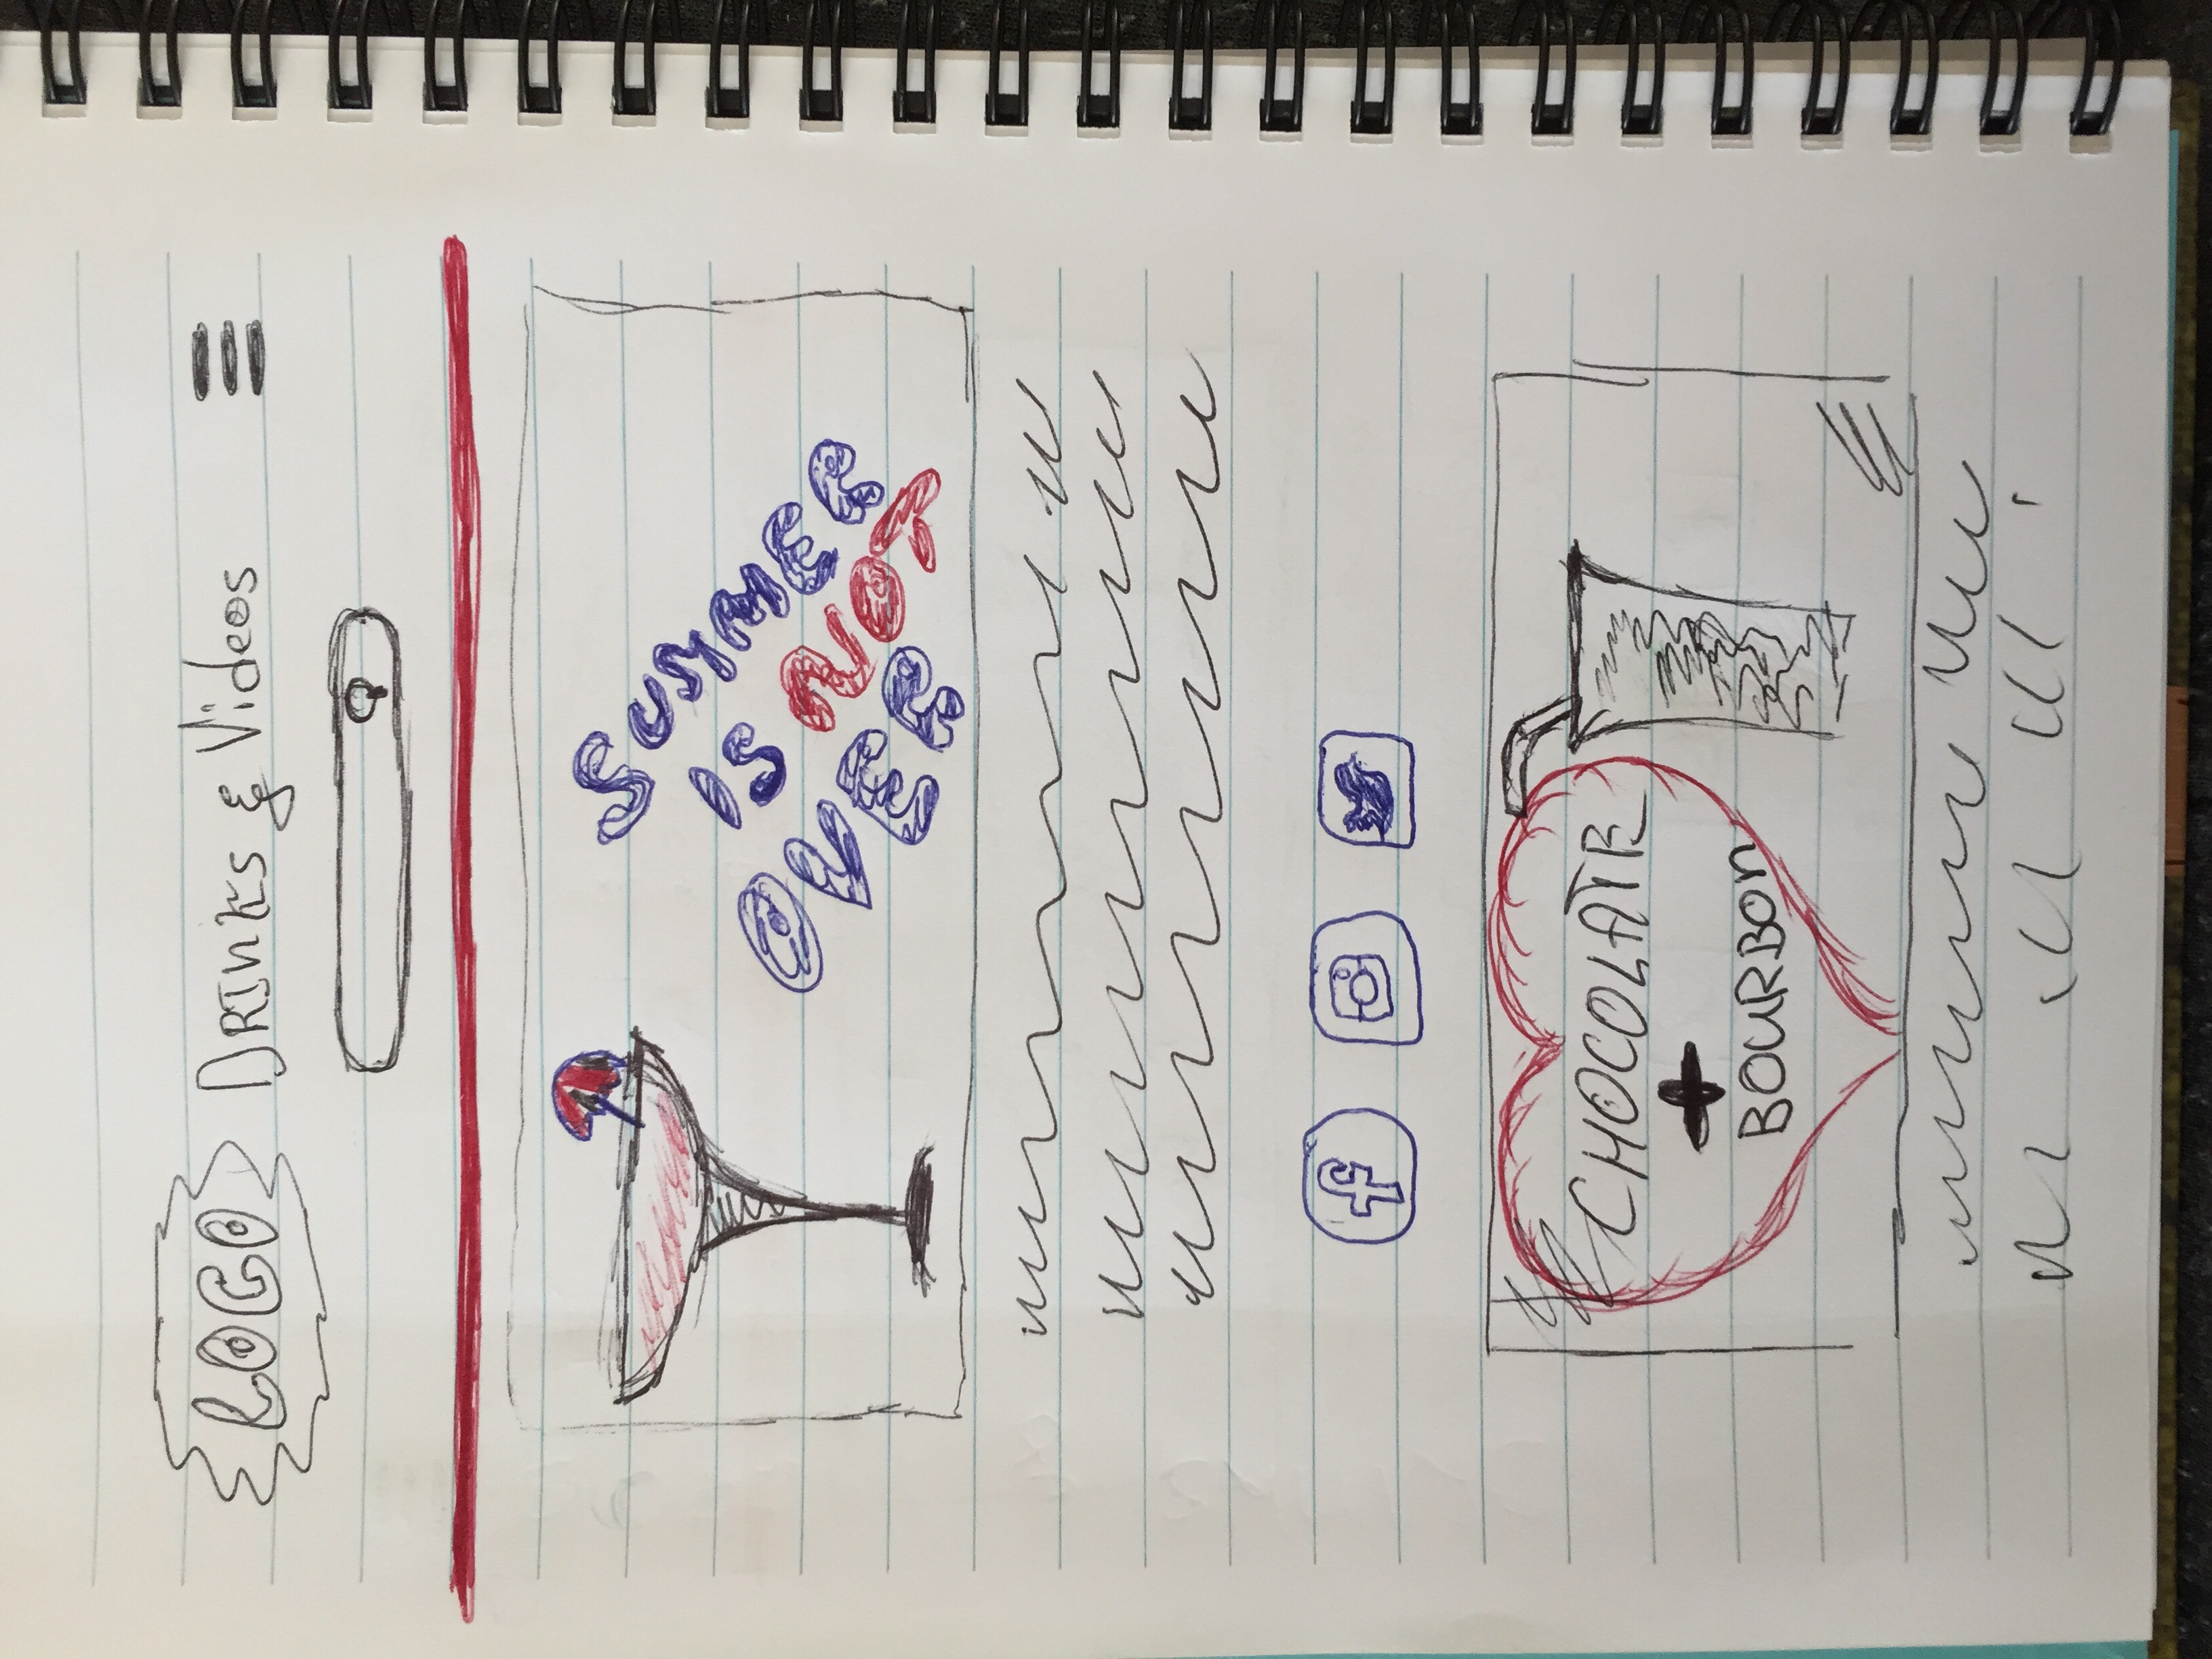 LOGO DRINKS & Videos
SUMMER
IS NOT
OVER
f
CHOCOLATE
+
BOURBON